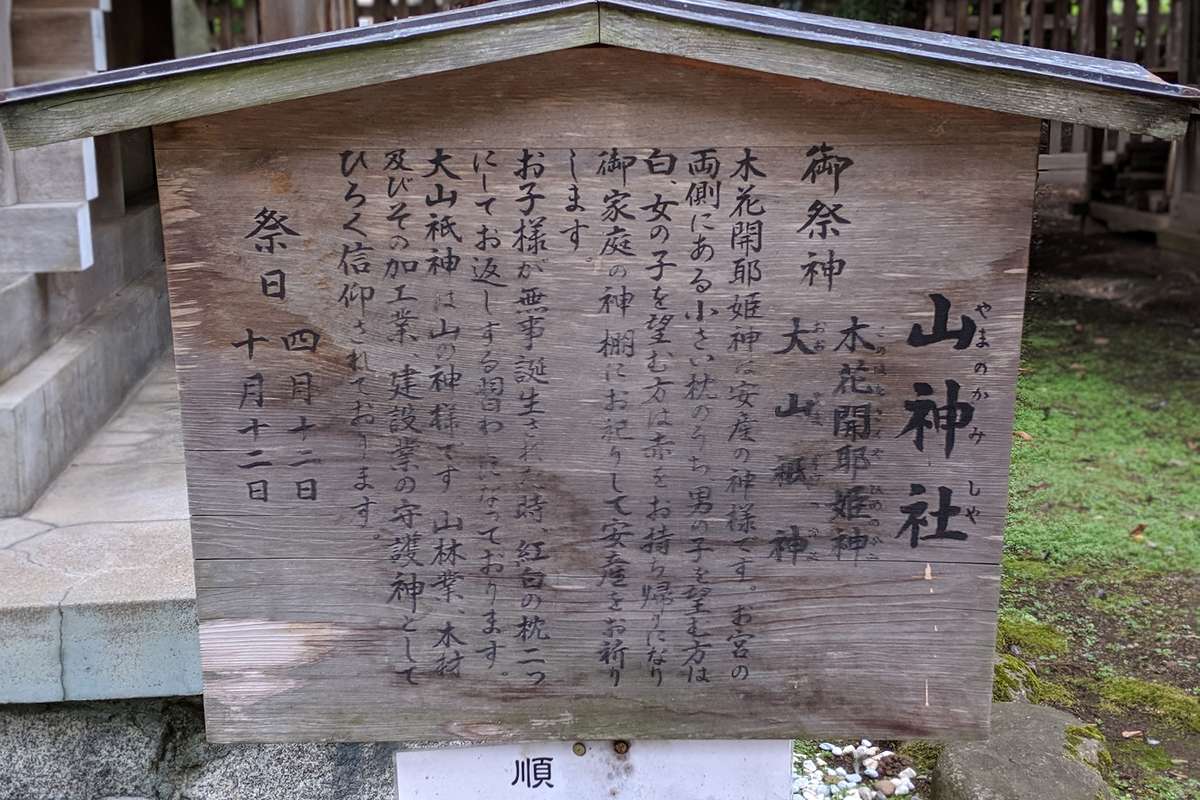 山神社
やまのかみしや
御祭神
木花開耶姫神
大山祇神
おお
木花開耶姫神は安産の神様です。お宮の
両側にある小さい枕のうち男の子を望む方は
白、女の子を望む方は赤をお持ち帰りになり
御家庭の神棚にお祀りして安産をお祈り
します。
お子様が無事誕生された時、紅白の枕二つ
にしてお返しする習わしになっております。
大山祇神は山の神様です 山林業、木材
及びその加工業、建設業の守護神として
ひろく信仰されております。
祭日 四月十二日
十月十二日
順